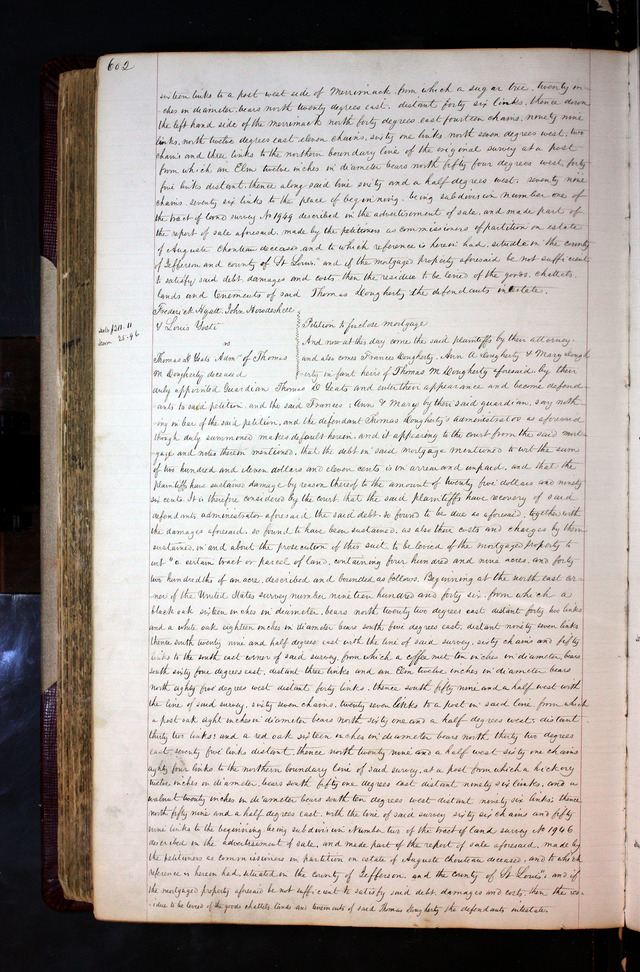 602
sixteen links to a post west side of Merrimack, from which a sugar tree, twenty in-
ches in diameter, bears north twenty degrees east, distant forty six links, thence down
the left hand side of the Merrimack north forty degrees east fourteen chains, ninety nine
links, north twelve degrees east eleven chains, sixty one links, north seven degrees west, two
chains and three links to the northern boundary line of the original survey at a post
from which an Elm twelve inches in diameter bears north fifty four degrees west, forty
five links distant, thence along said line sixty and a half degrees west, seventy nine
chains, seventy six links to the place of beginning, being subdivision number one of
the tract of land survey No 1949 described in the advertisement of sale, and made part of
the report of sale aforesaid, made by the petitioners as commissioners of partition on estate
of Auguste Chouteau deceased and to which reference is herein had, situate in the county
of Jefferson and county of St. Louis" and if the mortgage property aforesaid be not sufficient
to satisfy said debt, damages and costs then the residue to be levied of the goods, chattels,
lands and tenements of said Thomas Dougherty the defendants intestate.
Frederick Hyatt, John
& Louis Yosti
vs
Thomas D Yeats Admr of Thomas
M Dougherty deceased
debt $211.11
dam 25.96
Petition to foreclose mortgage
And now at this day come the said plaintiffs by their attorney,
and also comes Frances Dougherty, Ann A Dougherty & Mary Dough
erty infant heirs of Thomas M Dougherty aforesaid, by their
duly appointed Guardian Thomas D Yeats and enter their appearance and become defend
ants to said petition, and the said Frances, Ann & Mary by their said guardian, say noth
ing in bar of the said petition, and the defendant Thomas Dougherty's administrator as aforesaid
though duly summoned makes default herein, and it appearing to the court from the said mort
gage and notes therein mentioned, that the debt in said mortgage mentioned to wit the sum
of two hundred and eleven dollars and eleven cents is in arrear and unpaid, and that the
plaintiffs have sustained damage by reason thereof to the amount of twenty five dollars and ninety
six cents. It is therefore considered by the court that the said plaintiffs have recovery of said
defendants administrator aforesaid the said debt so found to be due as aforesaid, together with
the damages aforesaid, so found to have been sustained, as also their costs and charges by them
sustained in and about the prosecution of this suit to be levied of the mortgaged property to
wit "a certain tract or parcel of land, containing four hundred and nine acres, and forty
two hundredths of an acre, described and bounded as follows. Beginning at the north east cor-
ner of the United States survey number nineteen hundred and forty six, from which a
black oak sixteen inches in diameter, bears north twenty two degrees east distant forty two links
and a white oak eighteen inches in diameter bears south five degrees east, distant ninety seven links
thence south twenty nine and half degrees east with the line of said survey, sixty chains and fifty
links to the south east corner of said survey, from which a coffee nut ten inches in diameter bears
south sixty four degrees east, distant three links and an Elm twelve inches in diameter bears
north eighty five degrees west distant forty links, thence south fifty nine and a half west with
the line of said survey, sixty seven chains, twenty seven links to a post in said line from which
a post oak eight inches in diameter bears north sixty one and a half degrees west, distant
thirty two links; and a red oak sixteen inches in diameter bears north thirty two degrees
east, seventy five links distant, thence north twenty nine and a half west sixty one chains
eighty four links to the northern boundary line of said survey, at a post from which a hickory
twelve inches in diameter, bears south fifty one degrees east distant ninety six links, and a
walnut twenty inches in diameter bears south ten degrees west distant ninety six links; thence
north fifty nine and a half degrees east, with the line of said survey sixty six chains and fifty
nine links to the beginning being subdivision Number two of the tract of land survey No 1946
described in the advertisement of sale, and made part of the report of sale aforesaid, made by
the petitioners as commissioners in partition on estate of Auguste Chouteau deceased, and to which
reference is herein had, situated in the county of Jefferson and the county of St Louis"; and if
the mortgaged property aforesaid be not sufficient to satisfy said debt, damages and costs, then the res-
idue to be levied of the goods chattels, lands and tenements of said Thomas Dougherty the defendants intestate.